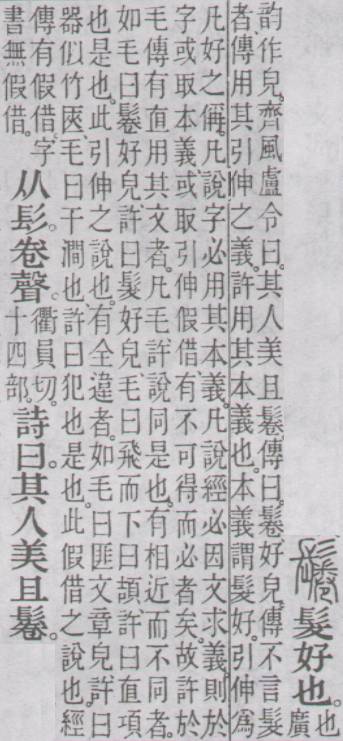 鬈髮好也。也廣
韵作皃。齊風盧令曰。其人美且鬈。傳曰。鬈好皃。傳不言髮
者、傳用其引伸之義。許用其本義也。本義謂髮好。引伸爲
凡好之偁。凡說字必用其本義。凡說經必因文求義。則於
字或取本義或取引伸假借。有不可得而必者矣。故許於
毛傳有直用其文者。凡毛許說同是也。有相近而不同者。
如毛曰鬈好皃。許曰髮好皃。毛曰飛而下曰頡。許曰直項
也是也。此引伸之說也。有全違者。如毛曰匪文章皃。許曰
器似竹匧。毛曰干澗也。許曰犯也是也。此假借之說也。經
傳有假借。字書無假借。从髟卷聲。衢員切。十四部。詩曰。其人美且鬈。